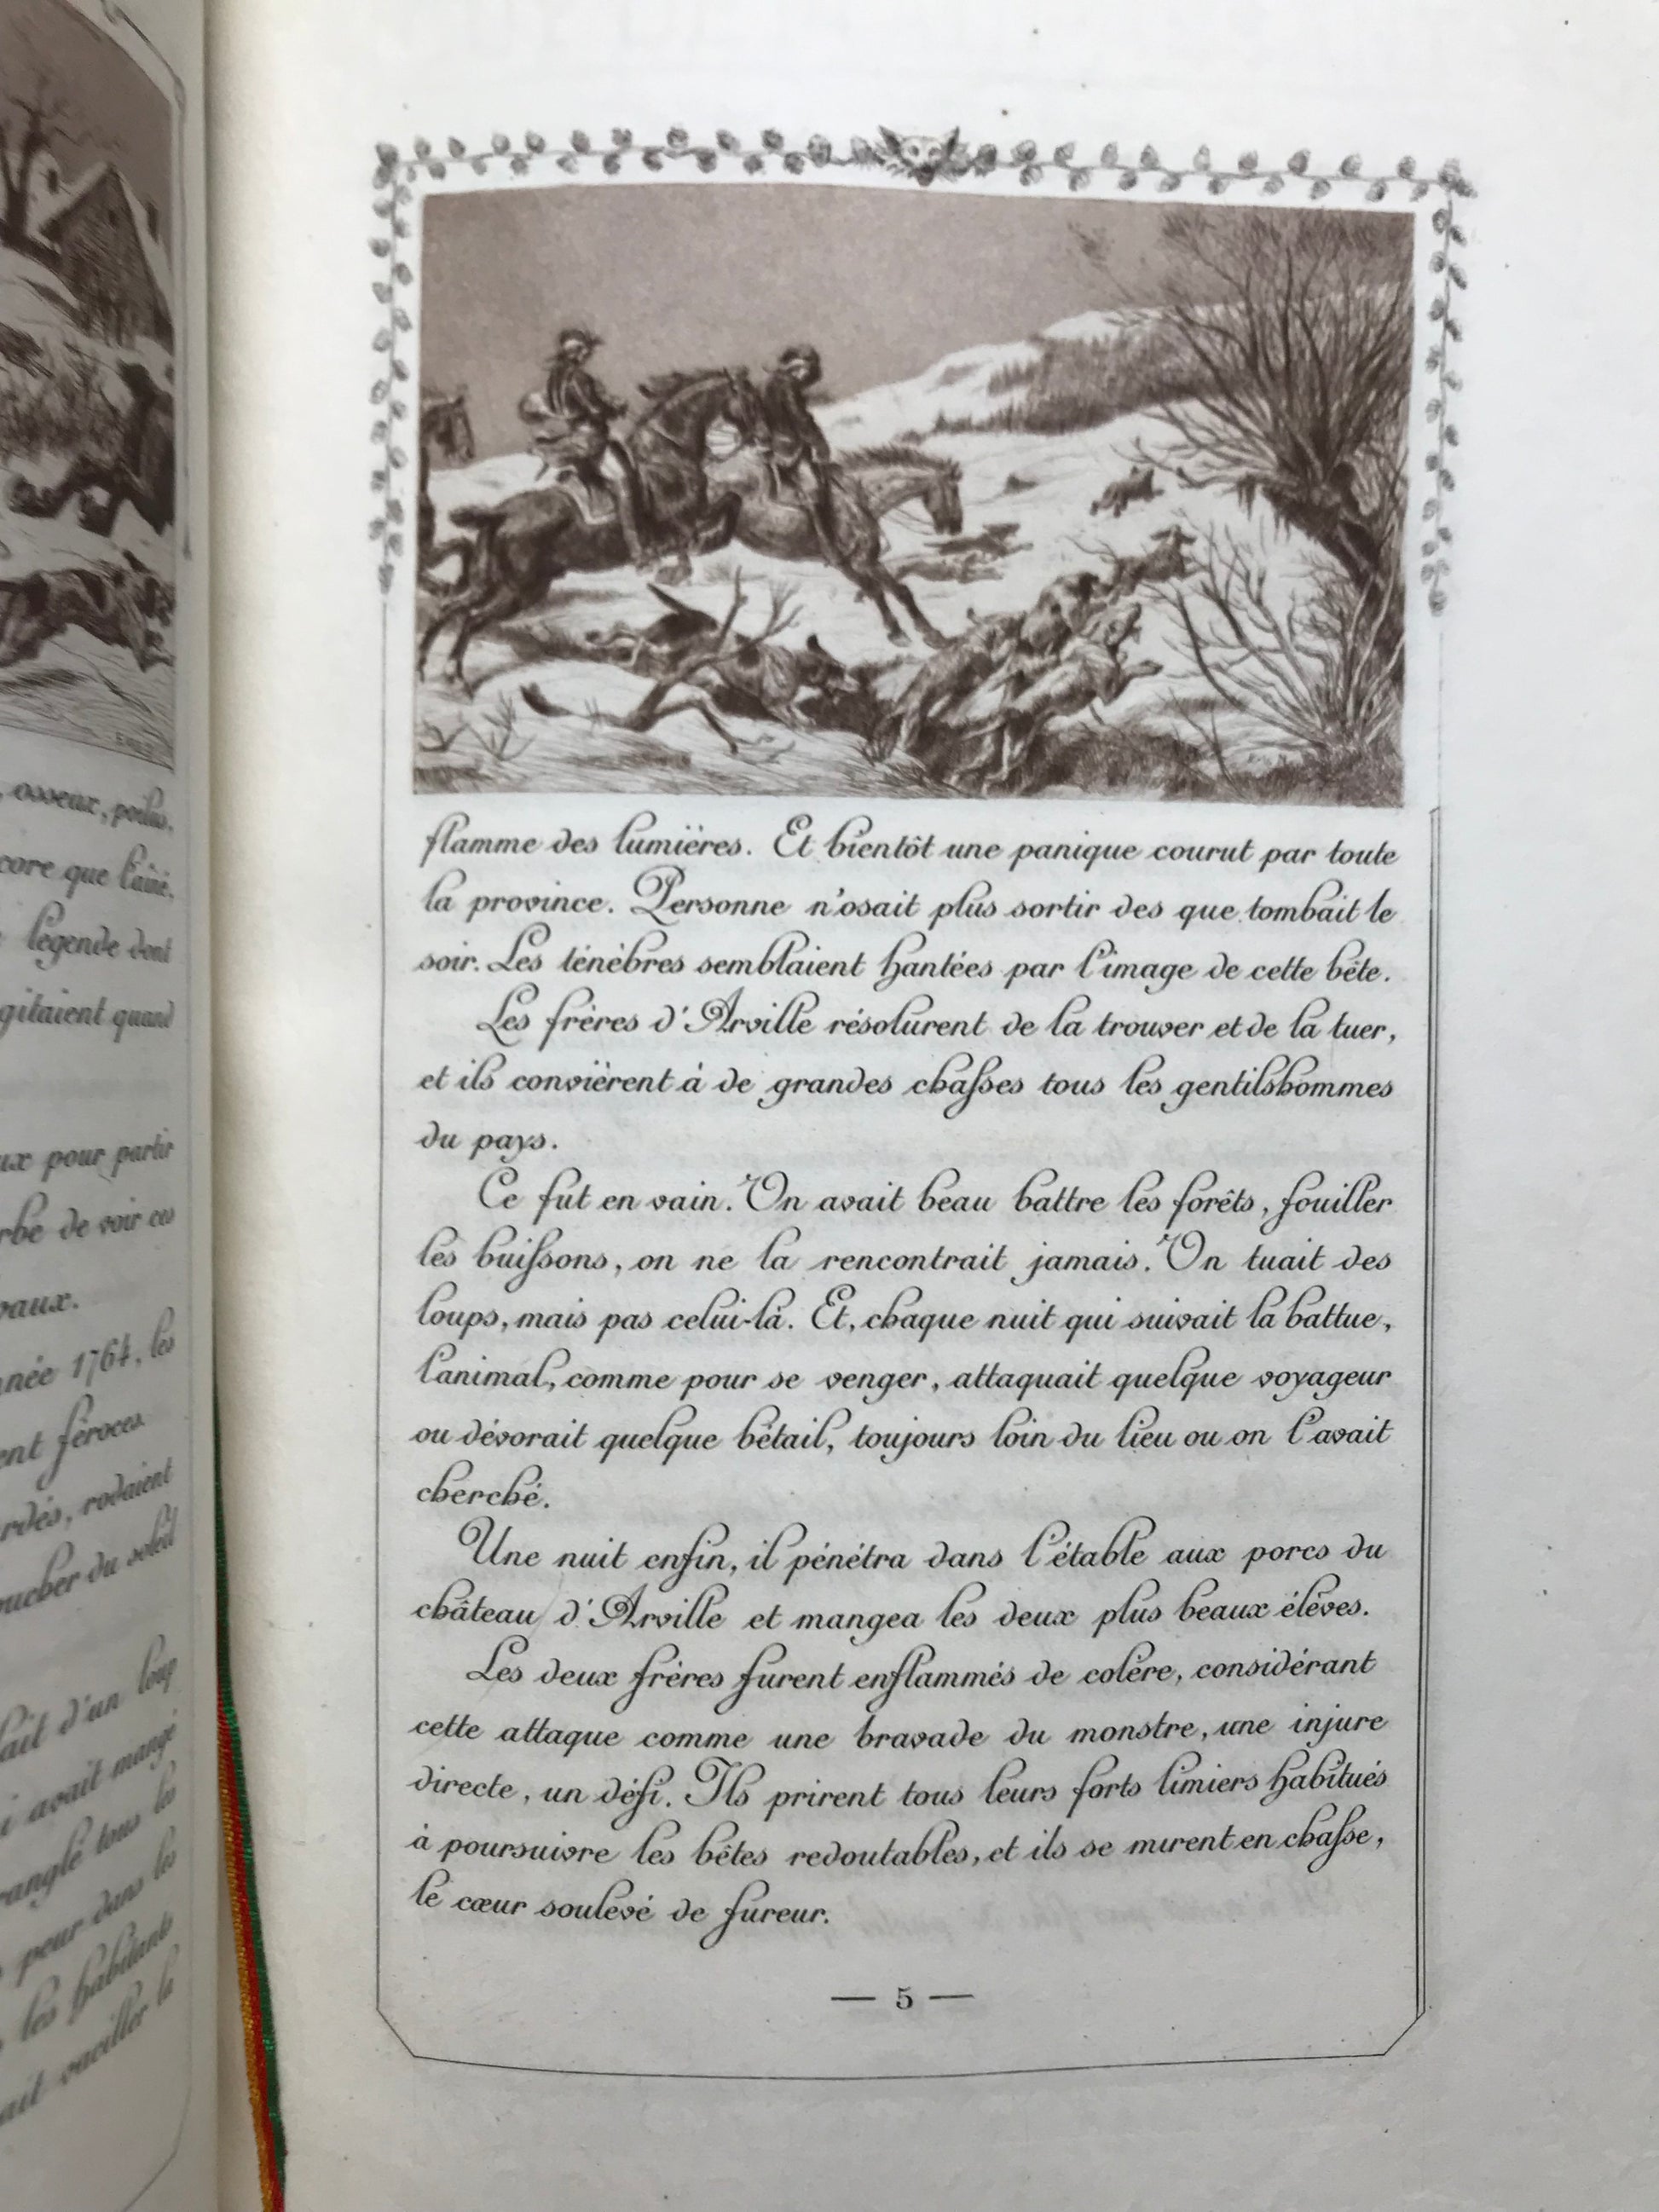 osseux, poilus.
core que l'aîné.
légende dont
gitaient quand
ux pour partir
rbe de voir ces
vaux.
née 1764, les
ent féroces.
rdés, rodaient
oucher du soleil
lait d'un loup
i avait mangé
ranglé tous les
peur dans les
les habitants
ait vaciller la
flamme des lumières. Et bientôt une panique courut par toute
la province. Personne n'osait plus sortir des que tombait le
soir. Les ténèbres semblaient hantées par l'image de cette bête.
Les frères d'Arville résolurent de la trouver et de la tuer,
et ils convièrent à de grandes chasses tous les gentilshommes
du pays.
Ce fut en vain. On avait beau battre les forêts, fouiller
les buissons, on ne la rencontrait jamais. On tuait des
loups, mais pas celui-là. Et, chaque nuit qui suivait la battue,
l'animal, comme pour se venger, attaquait quelque voyageur
ou dévorait quelque bétail, toujours loin du lieu ou on l'avait
cherché.
Une nuit enfin, il pénétra dans l'étable aux porcs du
château d'Arville et mangea les deux plus beaux élèves.
Les deux frères furent enflammés de colère, considérant
cette attaque comme une bravade du monstre, une injure
directe, un défi. Ils prirent tous leurs forts limiers habitués
à poursuivre les bêtes redoutables, et ils se mirent en chasse,
le cœur soulevé de fureur.
— 5 —